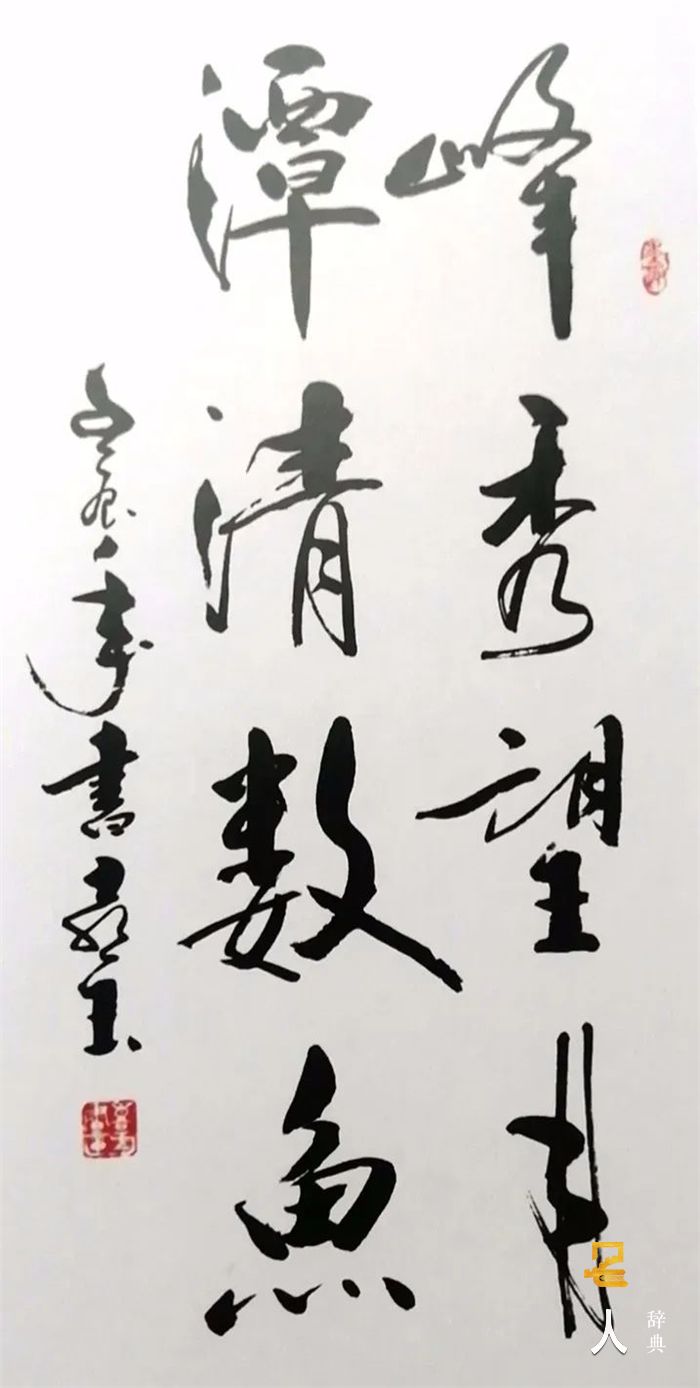 峰秀望月
潭清数魚
年書
名人
辞典